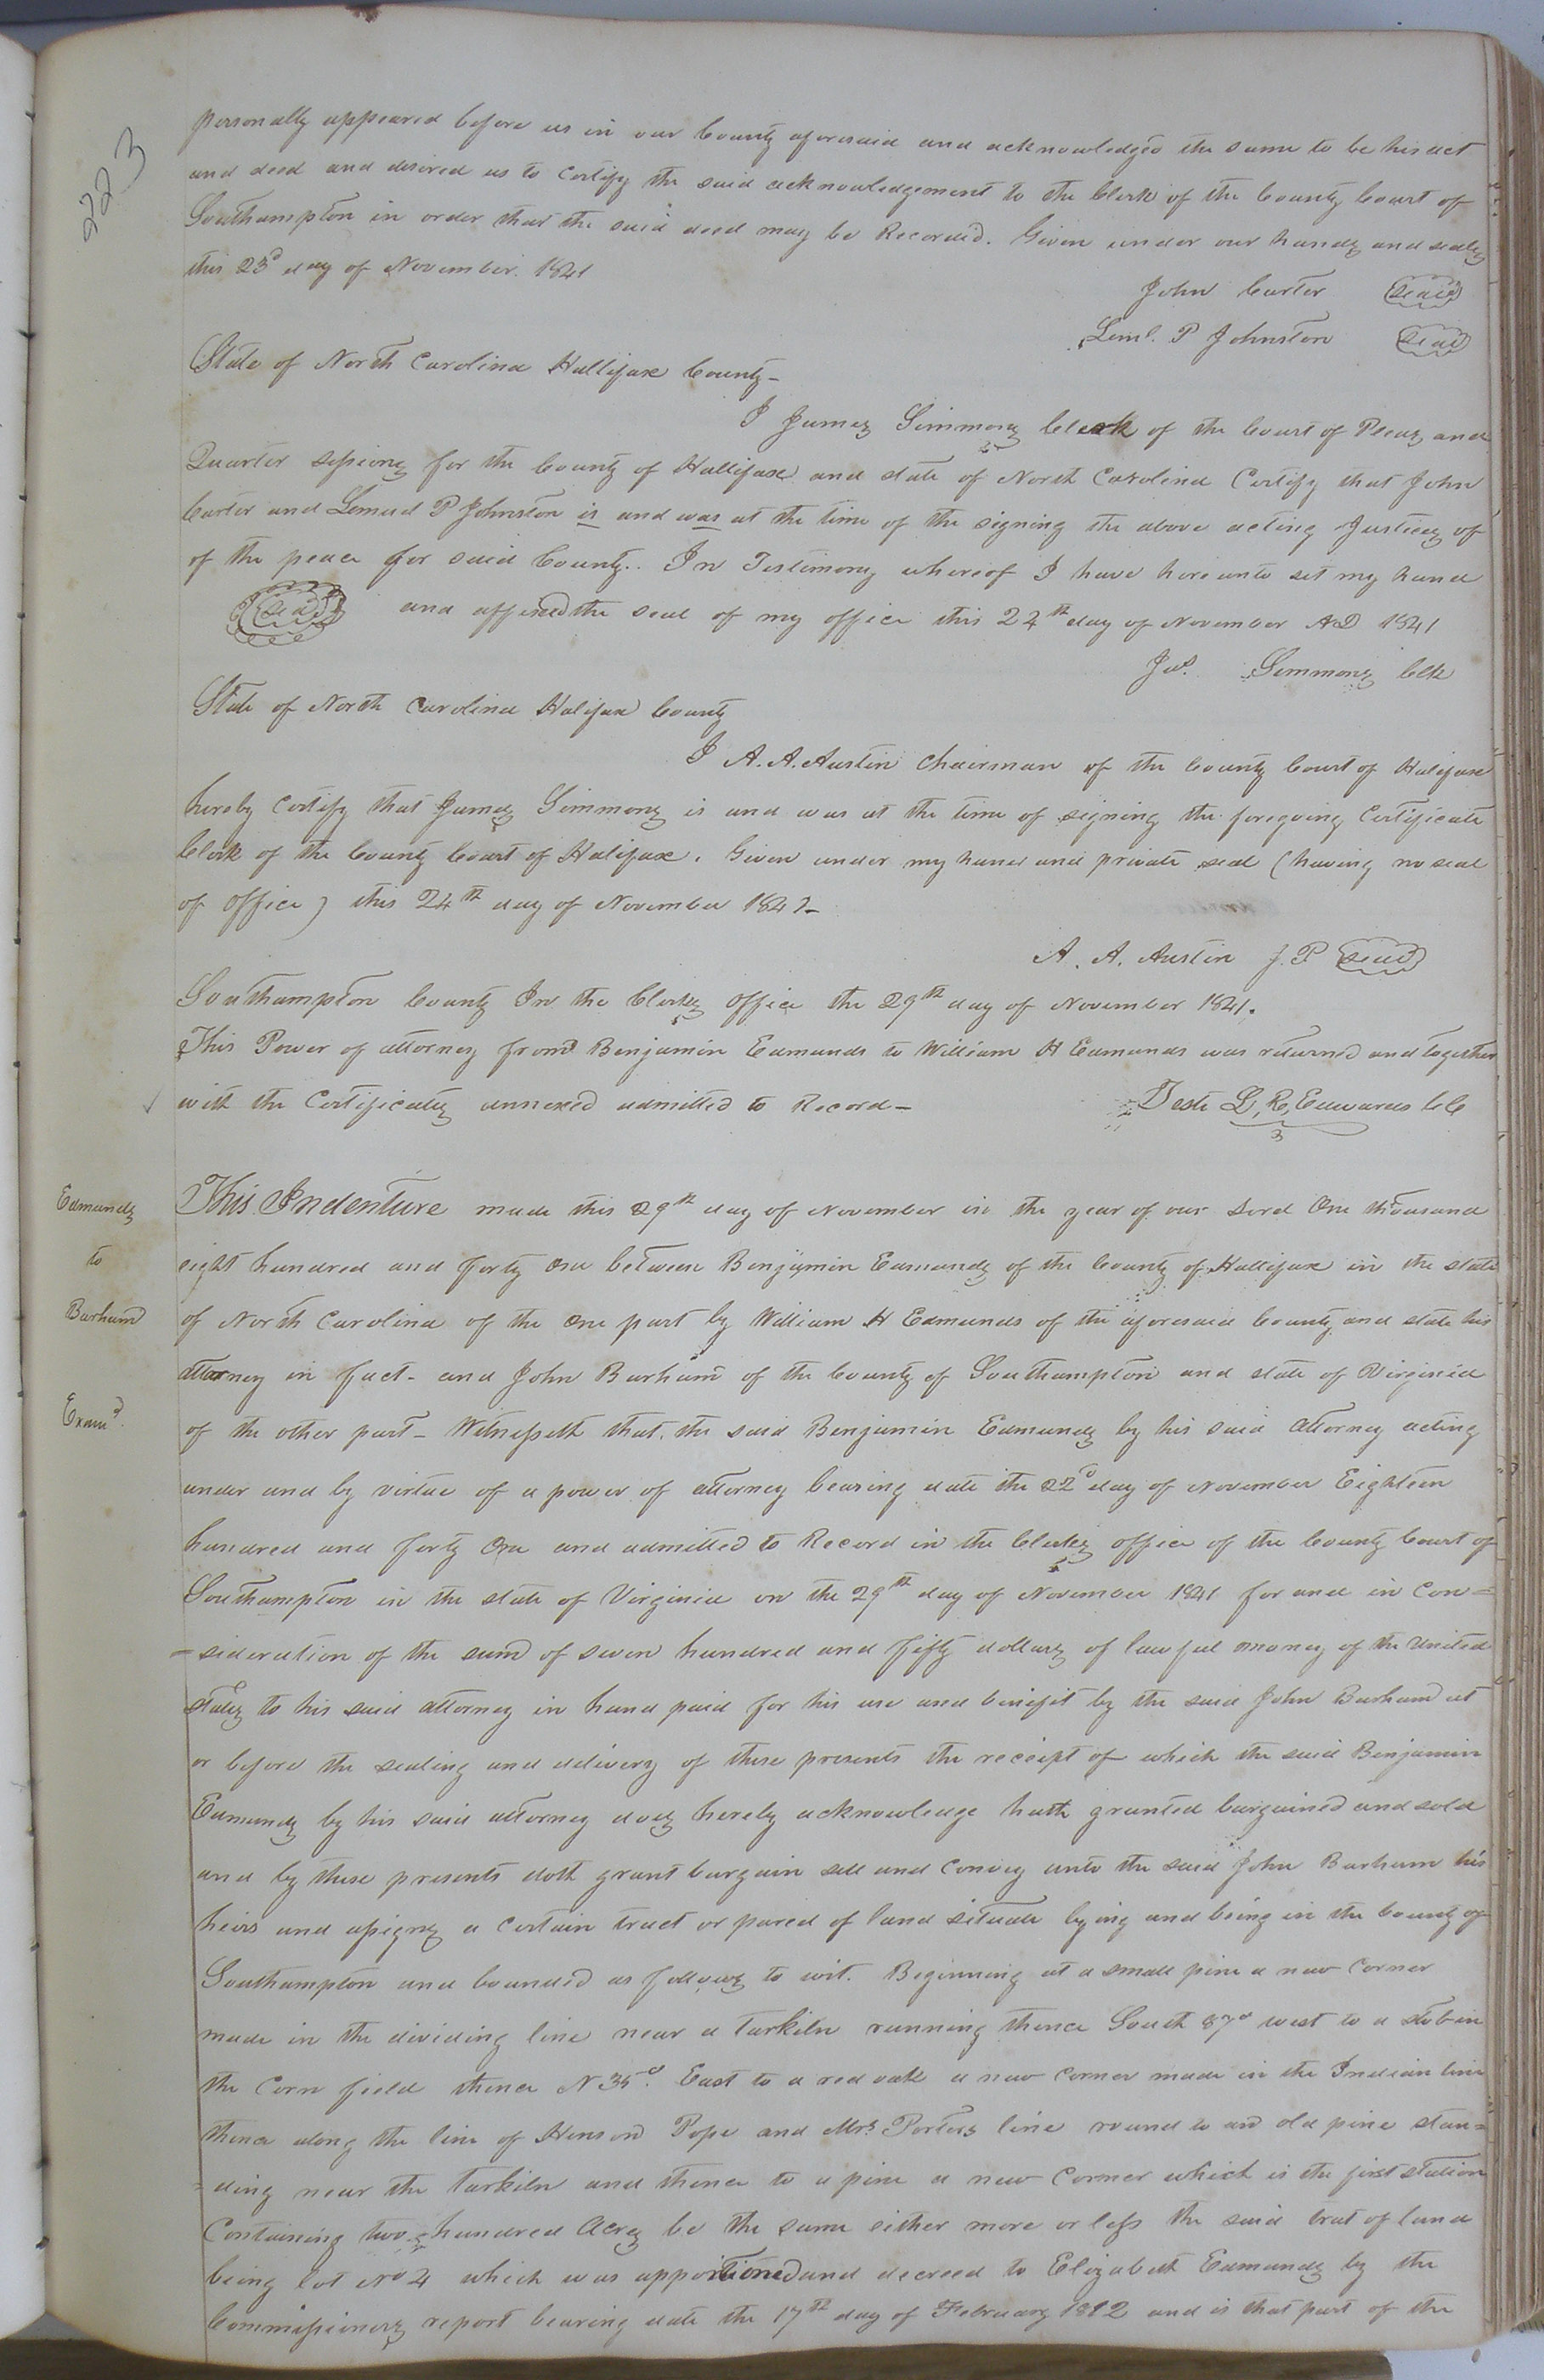 223
personally appeared before us in our County aforesaid and acknowledged the same to be his act
and deed and desired us to certify the said acknowledgement to the Clerk of the County Court of
Southampton in order that the said deed may be Recorded. Given under our hands and seals
this 23d day of November. 1841
John Carter (seal)
Leml. P Johnston (seal)
State of North Carolina Hallifax County-
I James Simmons Clerk of the Court of Pleas and
Quarter sessions for the County of Hallifax and state of North Carolina Certify that John
Carter and Lemuel P Johnston is and was at the time of the signing the above acting Justices of
of the peace for said County.. In Testimony whereof I have hereunto set my hand
(seal) and affixed the seal of my office this 24th day of November AD 1841
Jas. Simmons Clk
State of North Carolina Halifax County
I A. A. Austin Chairman of the County Court of Halifax
hereby Certify that James Simmons is and was at the time of signing the foregoing Certificate
Clerk of the County Court of Halifax. Given under my hand and private seal (having no seal
of office) this 24th day of November 1841-
A. A. Austin J. P (seal)
Southampton County In the Clerks office the 29th day of November 1841.
This Power of attorney from Benjamin Edmunds to William H Edmunds was returned and together
with the Certificates annexed admitted to Record-
Teste L, R, Edwards CC
Edmunds
to
Barham
Examd.
This Indenture made this 29th day of November in the year of our Lord One thousand
eight hundred and forty One between Benjamin Edmunds of the County of Hallifax in the state
of North Carolina of the One part by William H Edmunds of the aforesaid County and state his
attorney in fact- and John Barham of the County of Southampton and state of Virginia
of the other part- Witnesseth that, the said Benjamin Edmunds by his said attorney acting
under and by virtue of a power of attorney bearing date the 22d day of November Eighteen
hundred and forty One and admitted to Record in the Clerks office of the County Court of
Southampton in the state of Virginia on the 29th day of November 1841 for and in Con=
=sideration of the sum of seven hundred and fifty dollars of lawful money of the United
states to his said attorney in hand paid for his use and benefit by the said John Barham at
or before the sealing and delivery of these presents the receipt of which the said Benjamin
Edmunds by his said attorney does hereby acknowledge hath granted bargained and sold
and by these presents doth grant bargain sell and Convey unto the said John Barham his
heirs and assigns a Certain tract or parcel of land situate lying and being in the County of
Southampton and bounded as follows to wit. Beginning at a small pine a new Corner
made in the dividing line near a tarkiln running thence South 87° west to a stob in
the Corn field thence N 35°. East to a red oak a new Corner made in the Indian line
thence along the line of Henson Pope and Mrs Porters line round to an old pine stan=
=ding near the tarkiln and thence to a pine a new Corner which is the first station
Containing two hundred Acres be the same either more or less the said trat of land
being lot No 4 which was apportioned and decreed to Elizabeth Edmunds by the
Commissioners report bearing date the 17th day of February 1812 and is that part of the